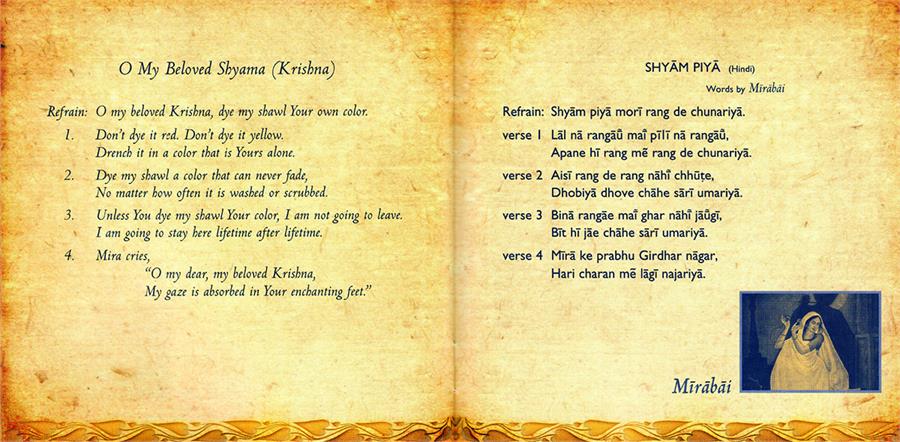 O My Beloved Shyama (Krishna)
Refrain: O my beloved Krishna, dye my shawl Your own color.
1. Don't dye it red. Don't dye it yellow.
Drench it in a color that is Yours alone.
2. Dye my shawl a color that can never fade,
No matter how often it is washed or scrubbed.
3. Unless You dye my shawl Your color, I am not going to leave.
I am going to stay here lifetime after lifetime.
4. Mira cries,
"O my dear, my beloved Krishna,
My gaze is absorbed in Your enchanting feet."
SHYĀM PIYĀ (Hindi)
Words by Mīrābāi
Refrain: Shyām piyā morī rang de chunariyā.
verse 1 Lāl nā rangāū̃ maĩ pīlī nā rangāū̃,
Apane hī rang mẽ rang de chunariyā.
verse 2 Aisī rang de rang nāhĩ chhūṭe,
Dhobiyā dhove chāhe sārī umariyā.
verse 3 Binā rangāe maĩ ghar nāhĩ jāū̃gī,
Bīt hī jāe chāhe sārī umariyā.
verse 4 Mīrā ke prabhu Girdhar nāgar,
Hari charan mẽ lāgī najariyā.
Mīrābāi